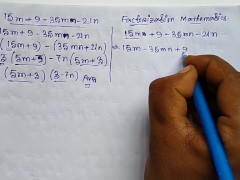 15m + 9 - 35mn - 21n
15m + 9 - 35mn - 21n
(15m + 9) - (35mn + 21n)
3 (5m + 3) - 7n (5m + 3)
(5m + 3) (3 - 7n) Ans
Factorization Mathematics
15m + 9 - 35mn - 21n
15m - 35mn + 9